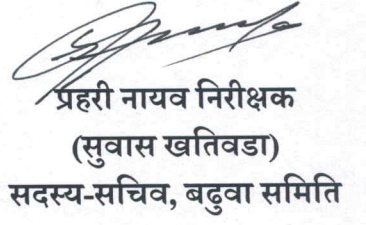 प्रहरी नायव निरीक्षक
(सुवास खतिवडा)
सदस्य-सचिव, बढुवा समिति